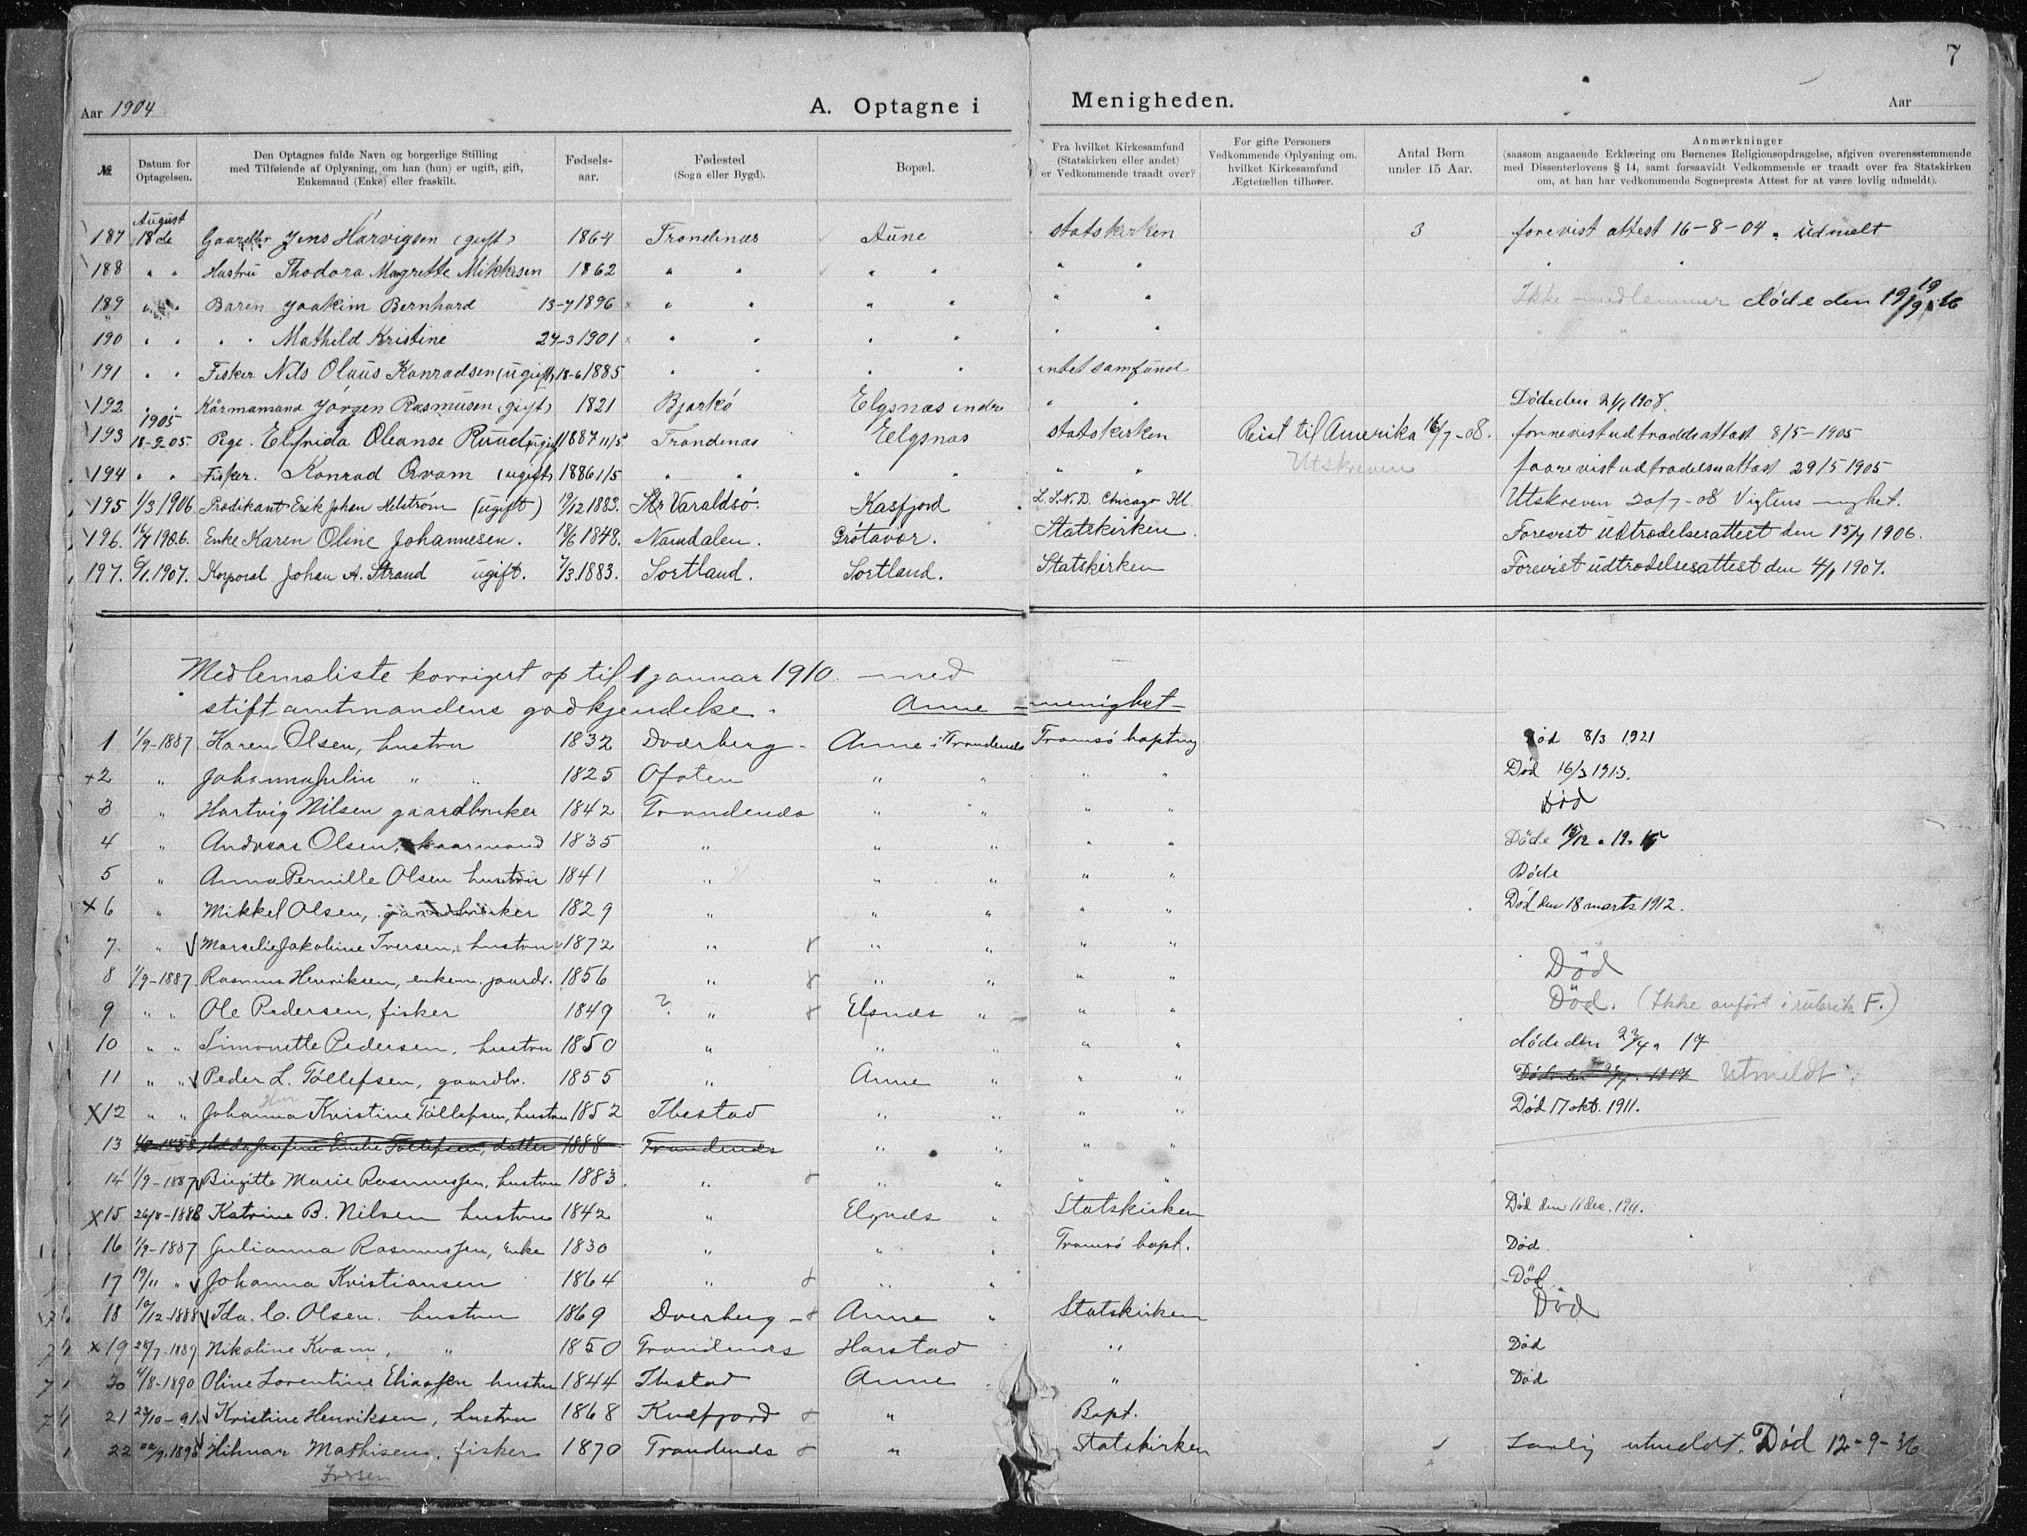 7
Aar 1904 A. Optagne i Menigheden. Aar
№ Datum for Optagelsen. Den Optagnes fulde Navn og borgerlige Stilling med Tilføiende af Oplysning, om han (hun) er ugift, gift, Enkemand (Enke) eller fraskilt. Fødselsaar. Fødested (Sogn eller Bygd). Bopæl. Fra hvilket Kirkesamfund (Statskirken eller andet) er Vedkommende traadt over? For gifte Personers Vedkommende Oplysning om, hvilket Kirkesamfund Ægtefællen tilhører. Antal Børn under 15 Aar. Anmærkninger (saasom angaaende Erklæring om Børnenes Religionsopdragelse, afgiven overensstemmende med Dissenterlovens § 14, samt forsaavidt Vedkommende er traadt over fra Statskirken om, at han har vedkommende Sogneprests Attest for at være lovlig udmeldt).
187 August 18de Jens Harvigsen (gift) 1864 Trondenæs Aune statskirken 3 forevist attest 16-8-04. udmelt
188 " " Hustru Thodora Margrette Mikkesen 1862 " " " " " " " "
189 " " Baren Joakim Bernhard 13-7 1896 " " " " " " Ikke medlemmer døde den 19/9 1916
190 " " " " Mathild Kristine 24-3 1901 " " " " " " " "
191 " " Fisker Nils Olaus Konradsen (ugift) 18-6 1885 " " " " intet samfund
192 " " Kårmamand Jørgen Rasmusen (gift) 1821 Bjarkö Elgsnæs indre " " Døde den 2/1 1908.
193 1905 18-9-05 Pege. Elfrida Oleanse Ruud ugift 1887 11/5 Trondenæs Elgsnæs statskirken Reist til Amerika 16/7-08. fornevist udtrædde attest 8/5-1905
194 " " Fisker. Konrad Qvam (ugift) 1886 1/5 " " " " " " Utskreven faarevist udtrædelsesattest 29/5 1905
195 1/3 1906. Prædikant Erik Johan Helström (ugift) 19/12 1883. Str Varaldsö. Kasfjord L.S.N.D. Chicago Ill. Utskreven 20/7-08 Vigtens mghet.
196. 12/7 1906. Enke Karen Oline Johannesen. 18/6 1848. Namdalen. Grötavær. Statskirken. Forevist udtrædelsesattest den 15/7 1906.
197. 6/1. 1907. Korporal Johan A. Strand ugift. 7/3. 1883. Sortland. Sortland. Statskirken Forevist udtrædelsesattest den 4/1 1907.
Medlemsliste korrigert op til 1 januar 1910. med
stiftamtmandens godkjendelse. Anne - menighet -
1 1/9-1887 Karen Olsen, hustru 1832 Dværberg - Anne i Trondenæs Tromsø baptmg Død 8/3 1921
+2 " Johanna Julin " " 1825 Ofoten " " " " Død 16/3 1913.
3 " Hartvig Nilsen gaardbruker 1842 Trondenæs " " " " Død
4 " Andreas Olsen, kaarmand 1835 " " " " " Døde 15/12. 19.15
5 " Anna Pernille Olsen hustru 1841 " " " " " Døde
x6 " Mikkel Olsen, gaardbruker 1829 " " " " " Død den 18 marts 1912.
7. " Marselie Jakobine Iversen, hustru 1872 " " " " "
8 1/9-1887 Rasmus Henriksen, enkem. gaardr. 1856 " " " " " Død
9 " " Ole Pedersen, fisker 1849 ? " Elsnæs " " " Død. (Ikke anført i rubrik F.)
10 " " Simonette Pedersen, hustru 1850 " " " " " døde den 27/4. 17
11 " " Peder L. Tøllefsen, gaardbr. 1855 " Anne " " " Utmeldt
x12 " " Johanna Kristine Tøllefsen, hustru 1852 Ibestad " " " " Død 17 okt. 1911.
13 Emilie Tøllefsen, datter 1888 Trondenæs " " " "
14 1/9-1887 Birgitte Marie Rasmussen, hustru 1883. " " " " "
x15 26/8-1888 Katrine B. Nilsen hustru 1842 " Elgnæs " Statskirken Død den 11 des. 1911.
16 1/9-1887 Julianna Rasmussen, Enke 1830 " " " Tromsø bapt. Død.
17 19/11 " Johanna Kristiansen 1864 " " " Død
18 10/12-1888 Ida. C. Olsen. hustru 1869 Dverberg - Anne " Statskirken Død
x19 28/7-1889 Nikoline Kvam, " 1850 Trondenæs Harstad " Død
20 4/8-1890 Oline Lorentine Eliassen hustru 1844 Ibestad Anne " " Død
21 23/10-91 Kristine Henriksen, hustru 1868 Kvæfjord " Bapt.
22 22/9 1895 Hilmar Mathisen, fisker 1870 Trondenæs " Statskirken utmeldt. Død 12-9-36
Iversen